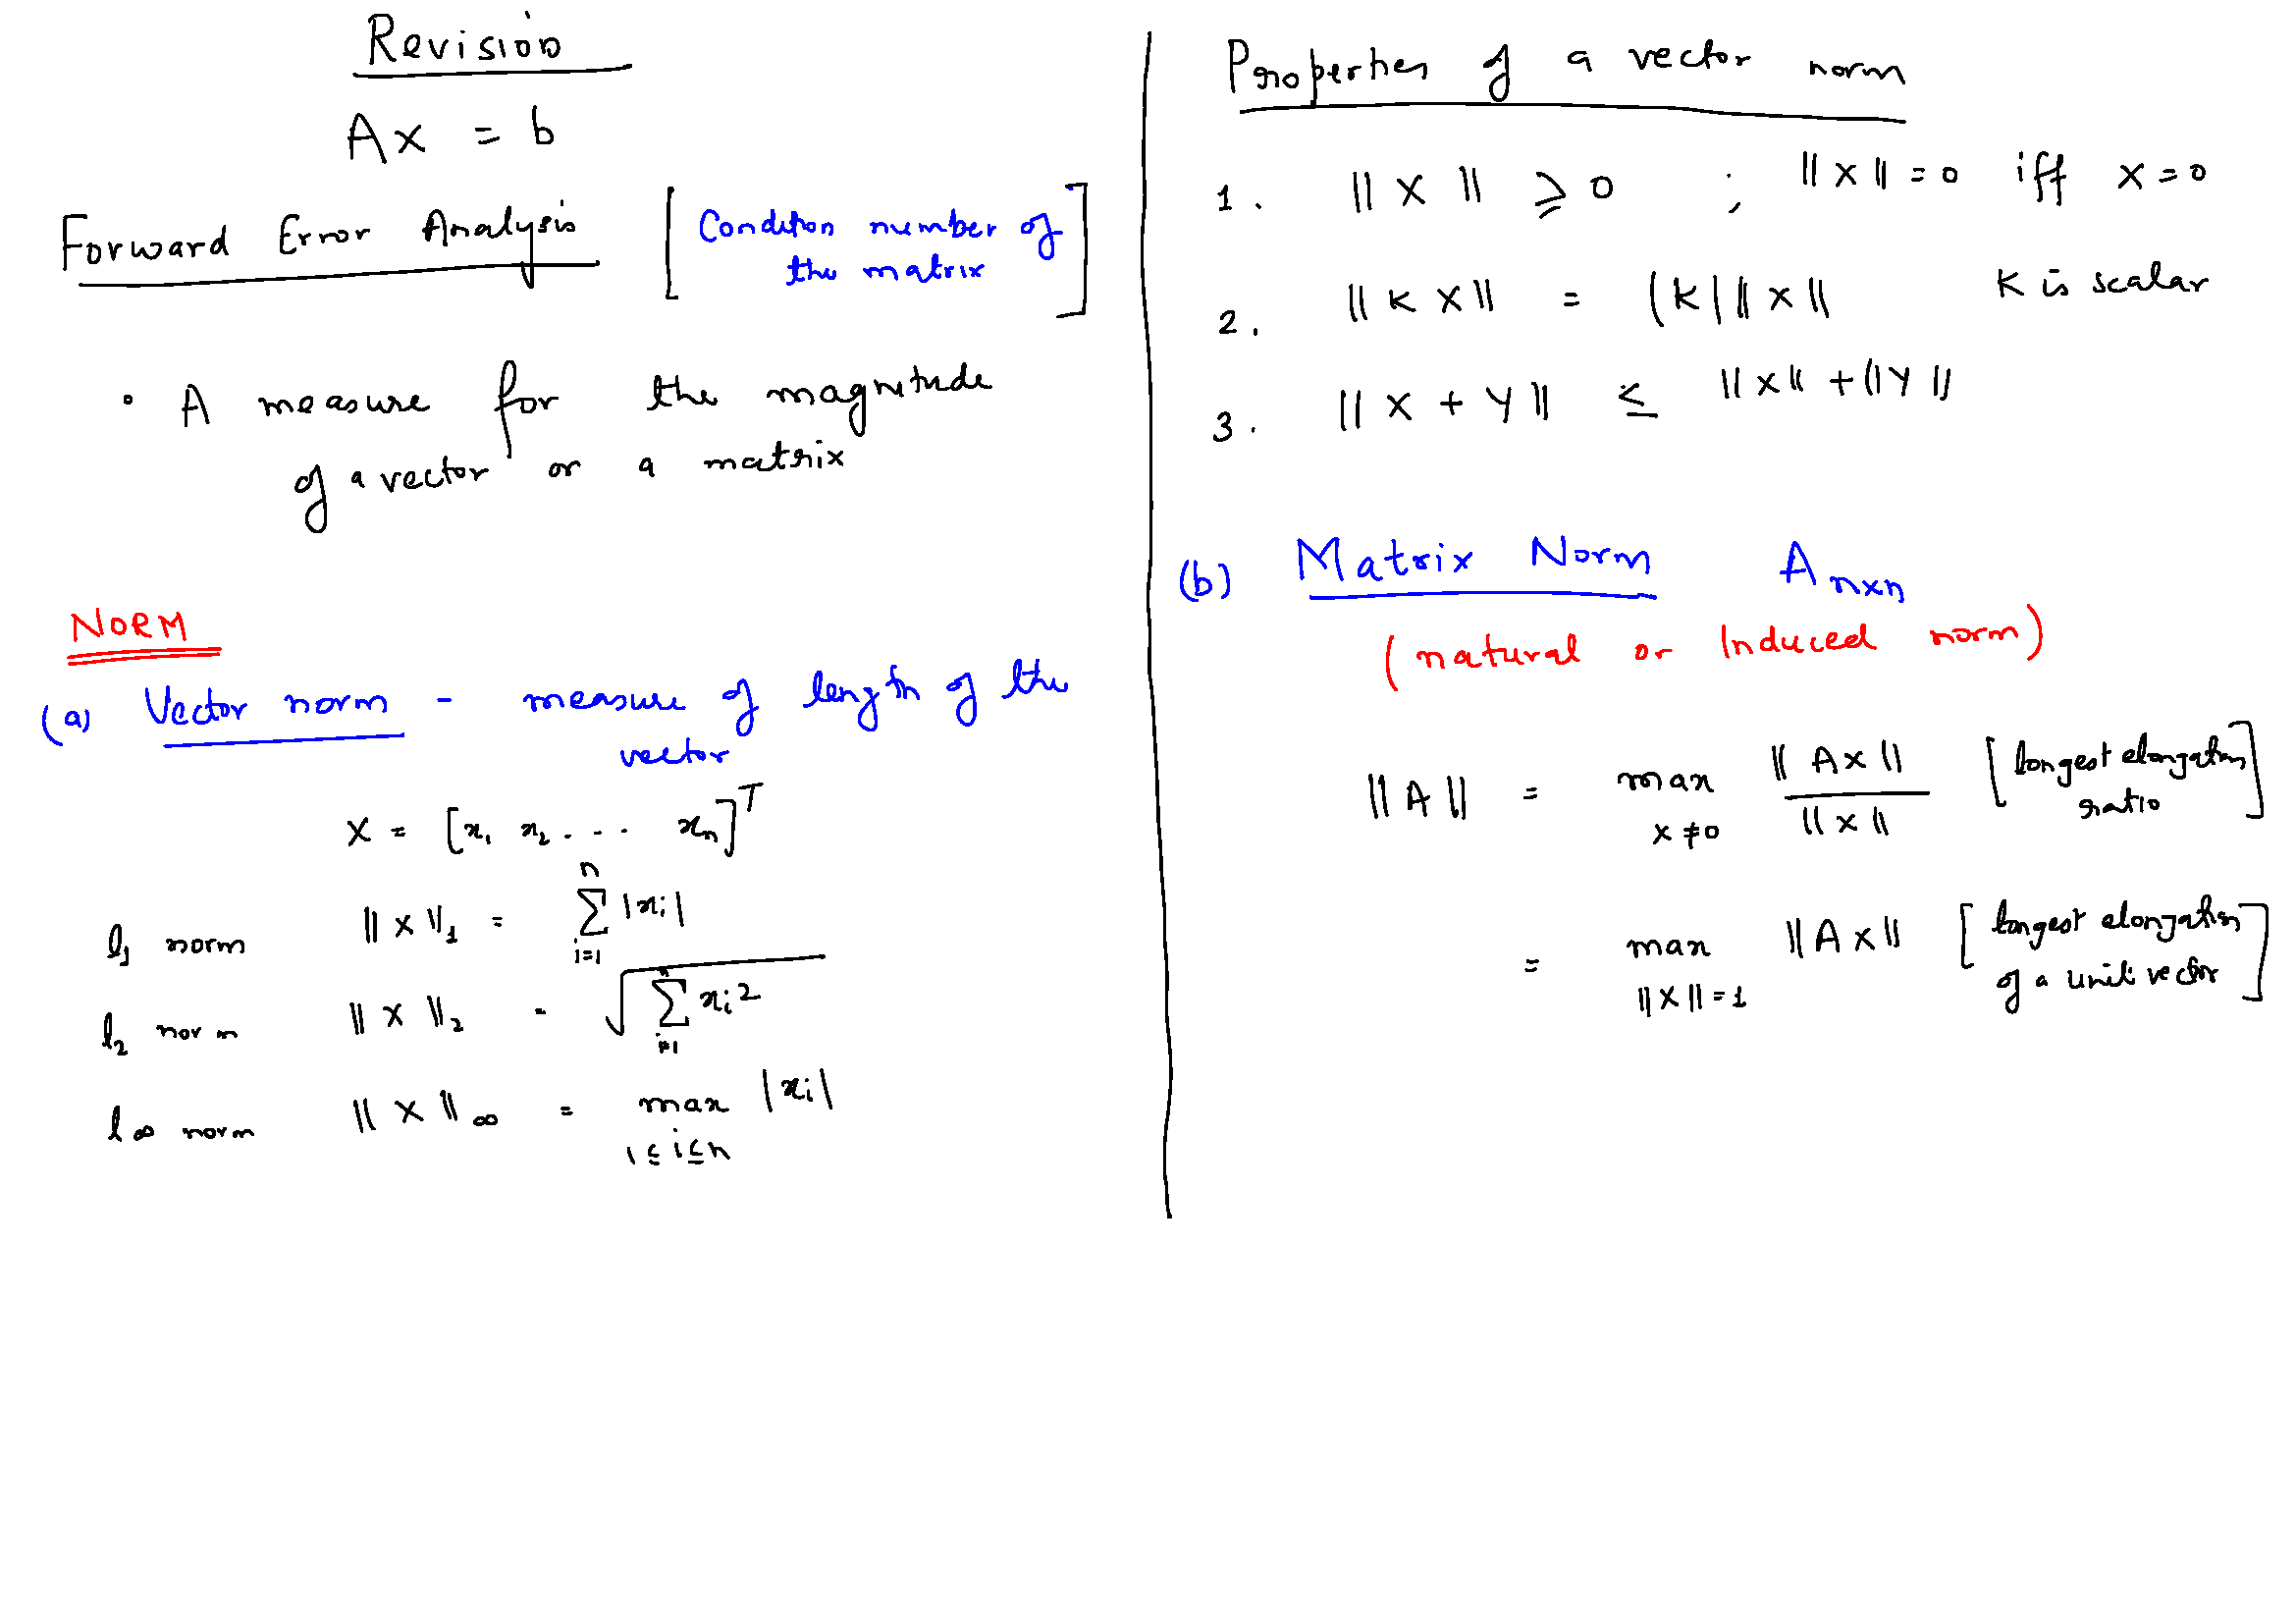 Revision
Ax = b
Forward Error Analysis [Condition number of the matrix]
• A measure for the magnitude
of a vector or a matrix
NORM
(a) Vector norm - measure of length of the
vector
X = [x₁ x₂ . - - . xₙ]ᵀ
l₁ norm ||X||₁ = ∑ᵢ₌₁ⁿ |xᵢ|
l₂ norm ||X||₂ = √(∑ᵢ₌₁ⁿ xᵢ²)
l∞ norm ||X||∞ = max |xᵢ|
1≤i≤n
Properties of a vector norm
1. ||X|| ⩾ 0 ; ||X|| = 0 iff X = 0
2. ||KX|| = |K| ||X|| K is scalar
3. ||X + Y|| ≤ ||X|| + ||Y||
(b) Matrix Norm Aₙₓₙ
(natural or Induced norm)
||A|| = max_{X≠0} ||AX|| / ||X|| [longest elongation ratio]
= max_{||X||=1} ||AX|| [longest elongation of a unit vector]